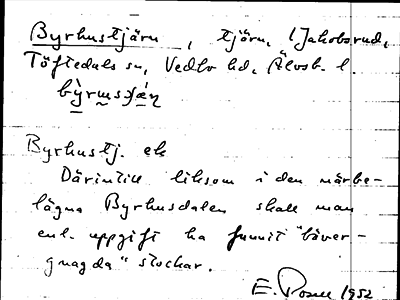 Byrhustjärn, tjärn, i Jakobsrud,
Töftedals sn, Vedbo hd, Älvsb. l.
Byrhustj. ek
Därintill liksom i den närbe-
lägna Byrhusdalen skall man
enl. uppgift ha funnit "bäver-
gnagda" stockar.
E. 1952